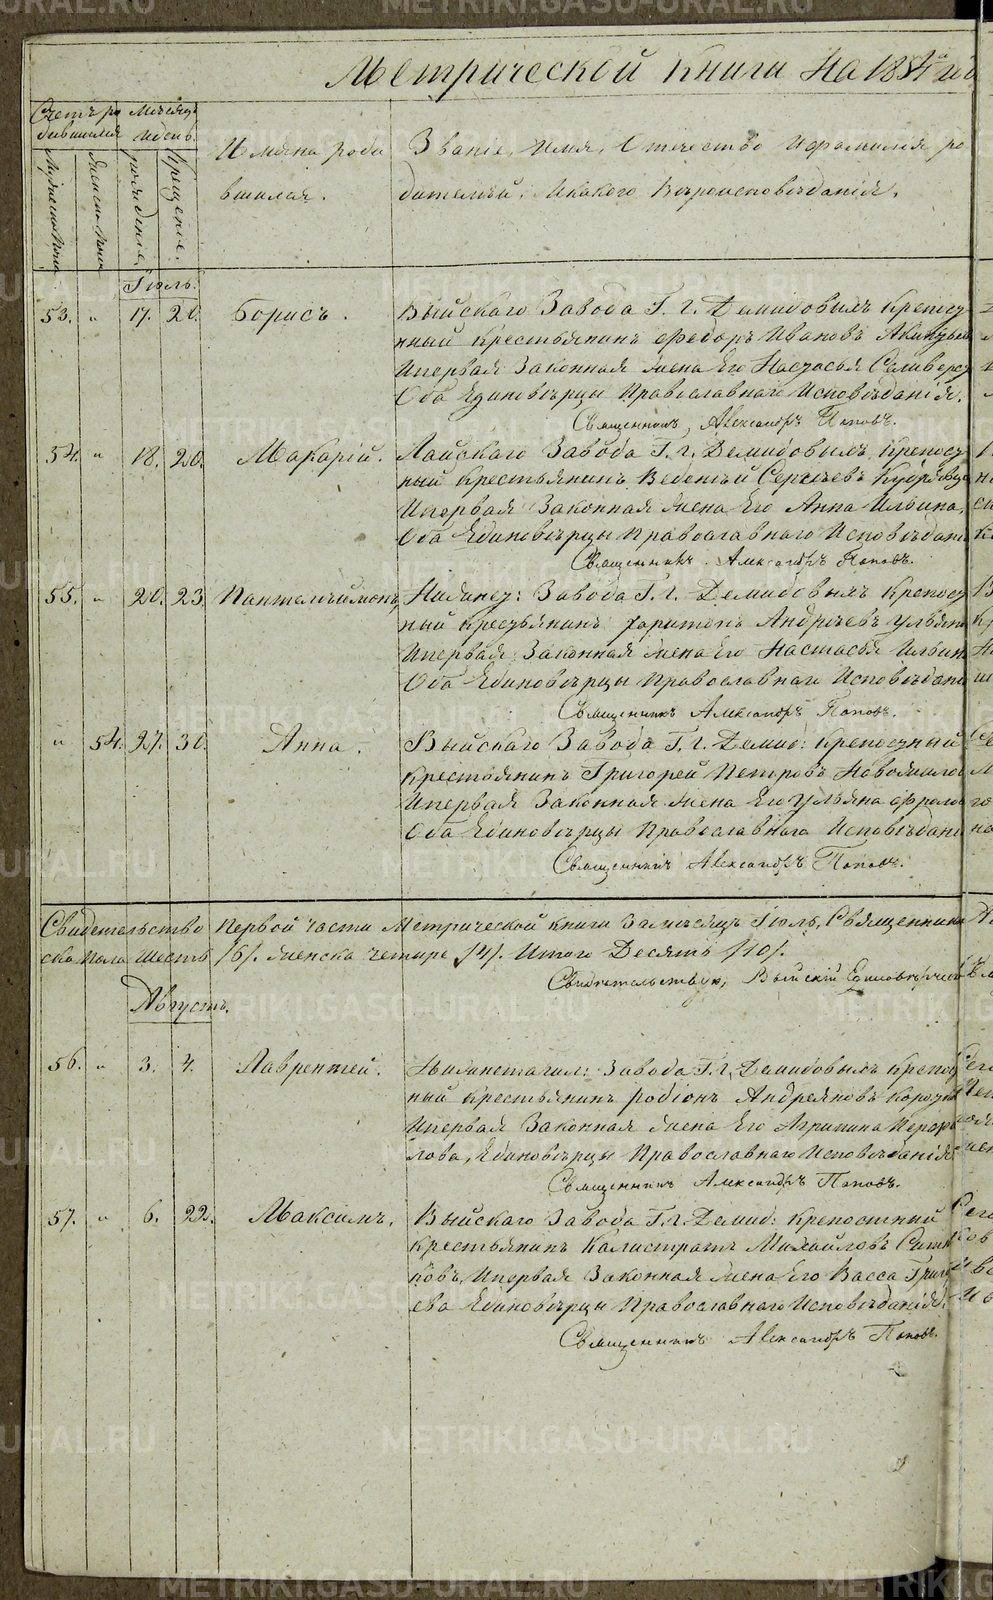 Метрической книги На 1854й год
Счетъ ро
дившихся
Месяцъ
и день.
Имяна роди
вшихся.
Званіе, имя, Отечество и фамилія ро
дителей, и какого Вероисповеданія.
Мужеска пола
Женска пола
рожденіе
Крещеніе.
Іюль.
53. „ 17. 20. Борисъ. Выйскаго Завода Г. г. Демидовыхъ Крепост
ный крестьянинъ Федоръ Ивановъ
и первая Законная жена Его Настасья Селиверст
Оба Единоверцы Православнаго Исповеданія.
Священникъ, Александръ Поповъ.
54. „ 18. 20. Макарій. Лайскаго Завода Г. г. Демидовыхъ, Крепост
ный крестьянинъ Веденей Сергеевъ Кудрявц
и первая Законная жена Его Анна Ильина,
Оба Единоверцы Православнаго Исповедані
Священникъ Александръ Поповъ.
55. „ 20. 23 Пантелеймонъ, Нидинет: Завода Г. г. Демидовыхъ Крепост
ный крестьянинъ Харитонъ Андреевъ Ульян
и первая Законная жена Его Настасья Ильин
Оба Единоверцы Православнаго Исповедані
Священникъ Александръ Поповъ.
„ 54. 27. 30. Анна. Выйскаго Завода Г. г. Демид: крепостный
крестьянинъ Григорей Петровъ
и первая Законная жена Его Ульяна Фролов
Оба Единоверцы Православнаго Исповедані
Священникъ Александръ Поповъ.
Свидетельство первой части Метрической книги За месяцъ Іюль, Священник
ска пола шесть /6/. женска четыре /4/. Итого Десять /10/.
Свидетельствую, Выйскій Единоверческ
Августъ.
56. „ 3. 4. Лаврентей. Нижнетагил: завода Г. г. Демидовыхъ Крепос
ный крестьянинъ Родіонъ Андреяновъ
и первая Законная жена Его Агрипина
лова, Единоверцы Православнаго Исповеданія
Священникъ Александръ Поповъ.
57. „ 6. 22. Максимъ, Выйскаго Завода Г. г. Демид: крепостный
крестьянинъ Калистратъ Михайловъ Ситн
ковъ, и первая Законная жена Его Васса Григ
ева Единоверцы Православнаго Исповеданія.
Священникъ Александръ Поповъ.
METRIKI.GASO-URAL.RU